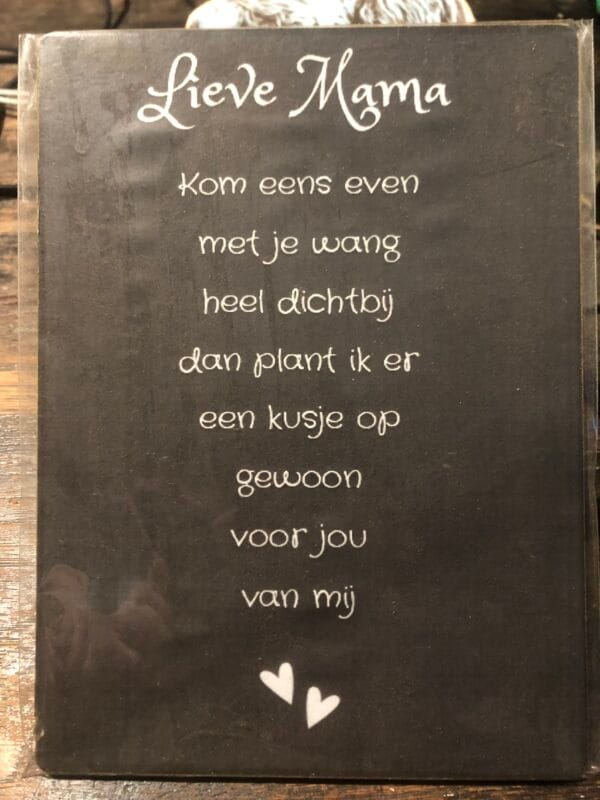 Lieve Mama
Kom eens even
met je wang
heel dichtbij
dan plant ik er
een kusje op
gewoon
voor jou
van mij